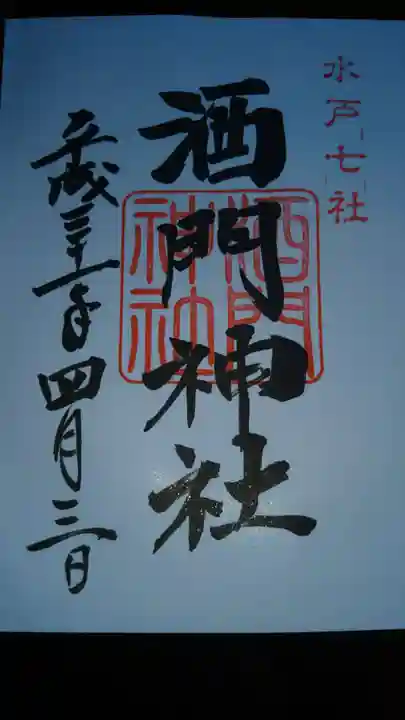 水戸七社
酒門神社
酒門
神社
平成三十一年四月三日